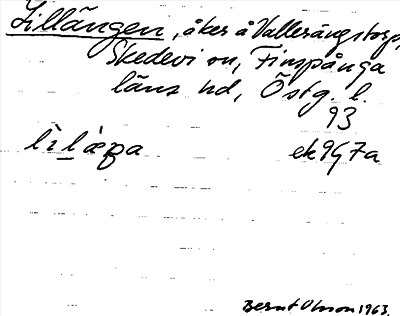 Lillängen, åker å Vallerängstorp,
Skedevi sn, Finspånga
läns hd, Östg. l.
93
ek 9G7a
Bernt Olsson 1963.